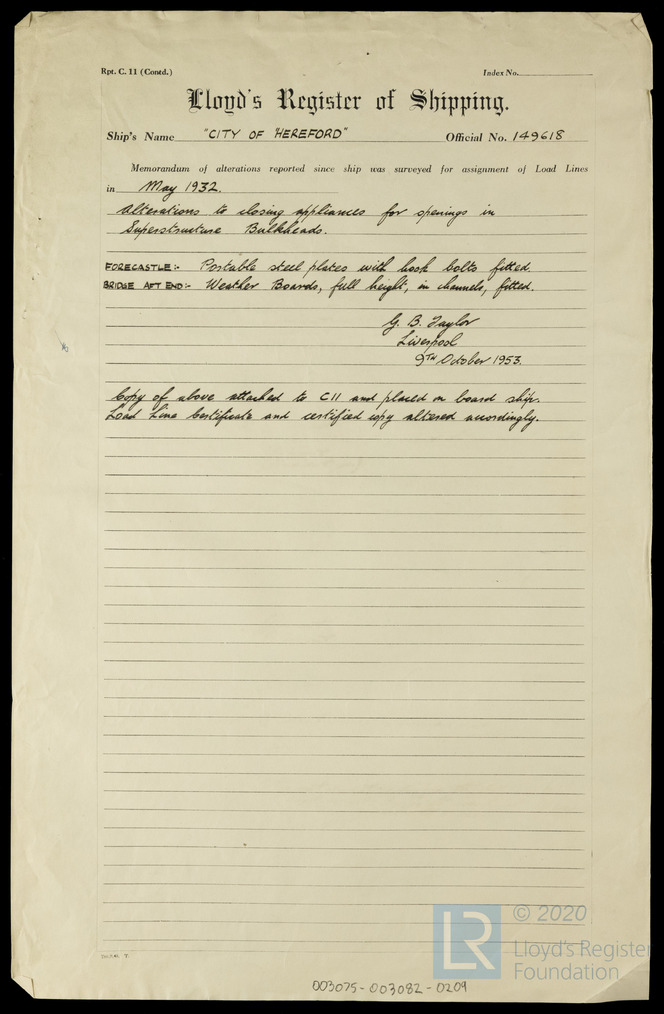 Rpt. C. 11 (Contd.) Index No.
Lloyd's Register of Shipping.
Ship's Name "CITY OF HEREFORD" Official No. 149618
Memorandum of alterations reported since ship was surveyed for assignment of Load Lines
in May 1932.
Alterations to closing appliances for openings in
Superstructure Bulkheads.
FORECASTLE:- Portable steel plates with hook bolts fitted.
BRIDGE AFT END:- Weather Boards, full height, in channels, fitted.
G. B. Taylor
Liverpool
9TH October 1953.
Copy of above attached to C11 and placed on board ship.
Load Line Certificate and certified copy altered accordingly.
© 2020
Lloyd's Register
Foundation
003075-003082-0209